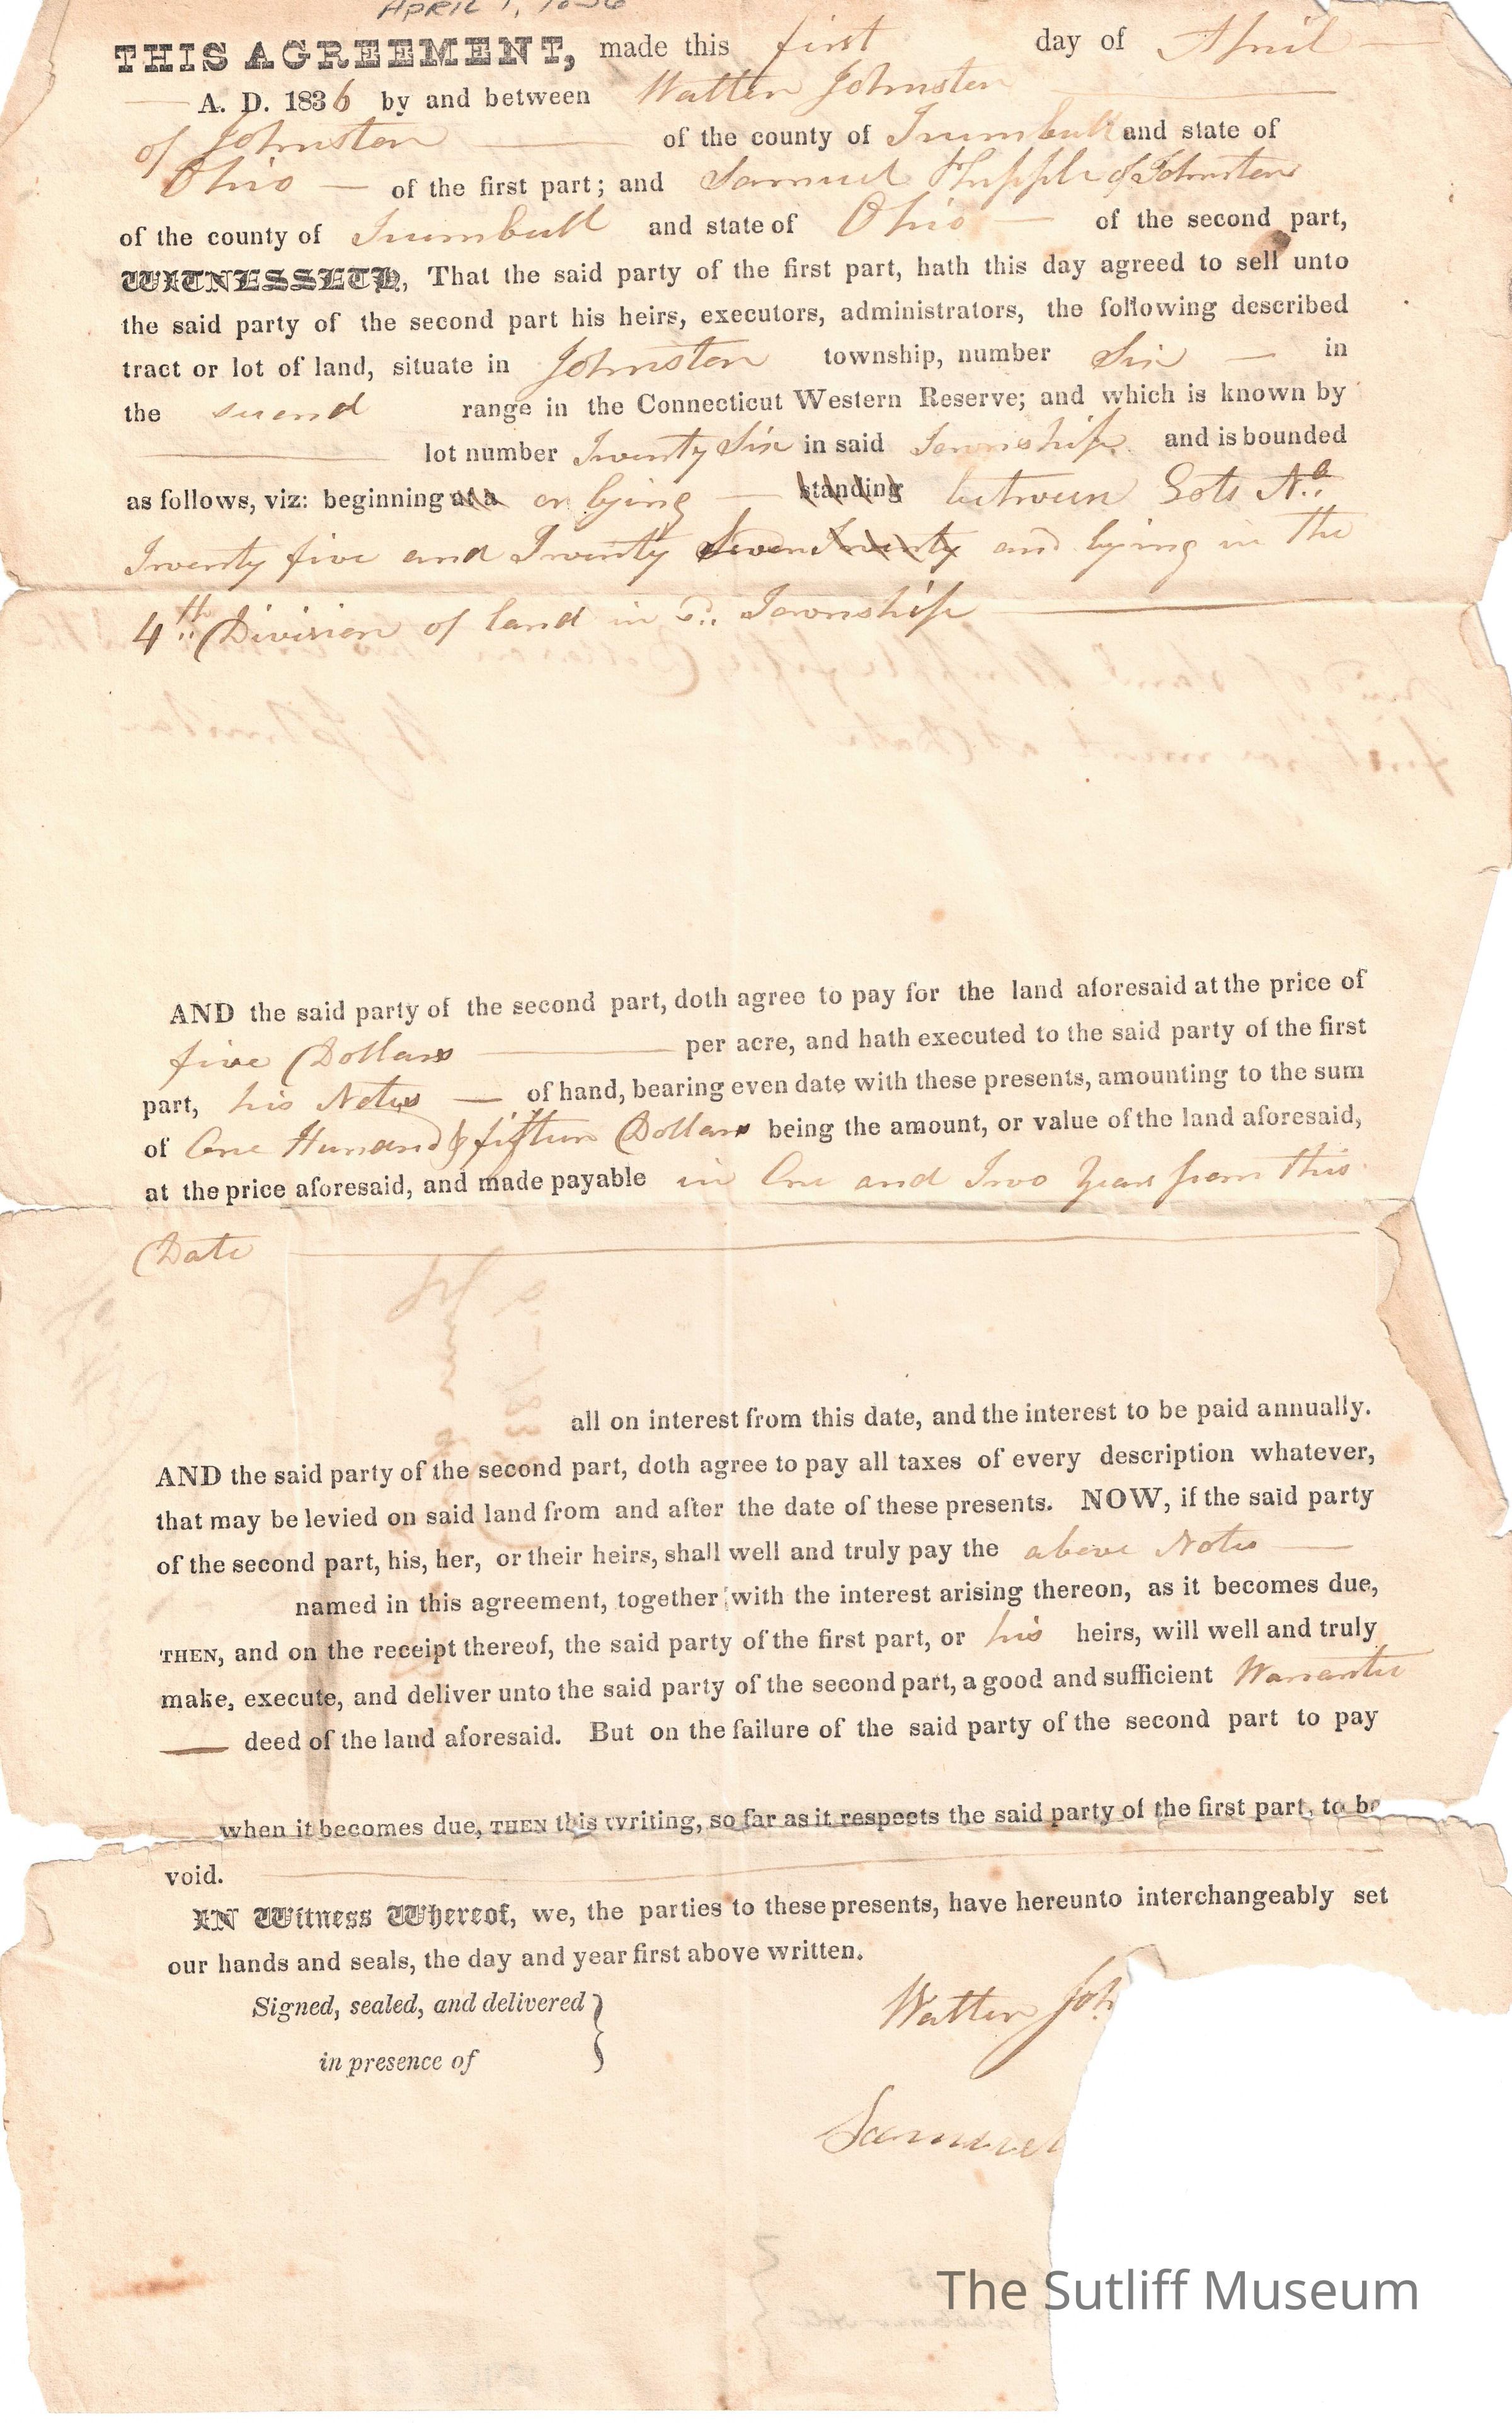 APRIL 1, 1836
THIS AGREEMENT, made this first day of April
A. D. 1836 by and between Walter Johnston
of Johnston of the county of Trumbull and state of
Ohio of the first part; and Samuel Hipple of Johnston
of the county of Trumbull and state of Ohio of the second part,
WITNESSETH, That the said party of the first part, hath this day agreed to sell unto
the said party of the second part his heirs, executors, administrators, the following described
tract or lot of land, situate in Johnston township, number Six in
the second range in the Connecticut Western Reserve; and which is known by
lot number Twenty Six in said Township and is bounded
as follows, viz: beginning at a or lying standing between Lots No.
Twenty five and Twenty Seven Twenty and lying in the
4th Division of land in Sd. Township
AND the said party of the second part, doth agree to pay for the land aforesaid at the price of
five Dollars per acre, and hath executed to the said party of the first
part, his Notes of hand, bearing even date with these presents, amounting to the sum
of One Hundred & fifteen Dollars being the amount, or value of the land aforesaid,
at the price aforesaid, and made payable in One and Two Years from this
Date
all on interest from this date, and the interest to be paid annually.
AND the said party of the second part, doth agree to pay all taxes of every description whatever,
that may be levied on said land from and after the date of these presents. NOW, if the said party
of the second part, his, her, or their heirs, shall well and truly pay the above Notes
named in this agreement, together with the interest arising thereon, as it becomes due,
THEN, and on the receipt thereof, the said party of the first part, or his heirs, will well and truly
make, execute, and deliver unto the said party of the second part, a good and sufficient Warrantee
deed of the land aforesaid. But on the failure of the said party of the second part to pay
when it becomes due, THEN this writing, so far as it respects the said party of the first part, to be
void.
IN Witness Whereof, we, the parties to these presents, have hereunto interchangeably set
our hands and seals, the day and year first above written.
Signed, sealed, and delivered
in presence of
Walter Joh
Samuel
The Sutliff Museum